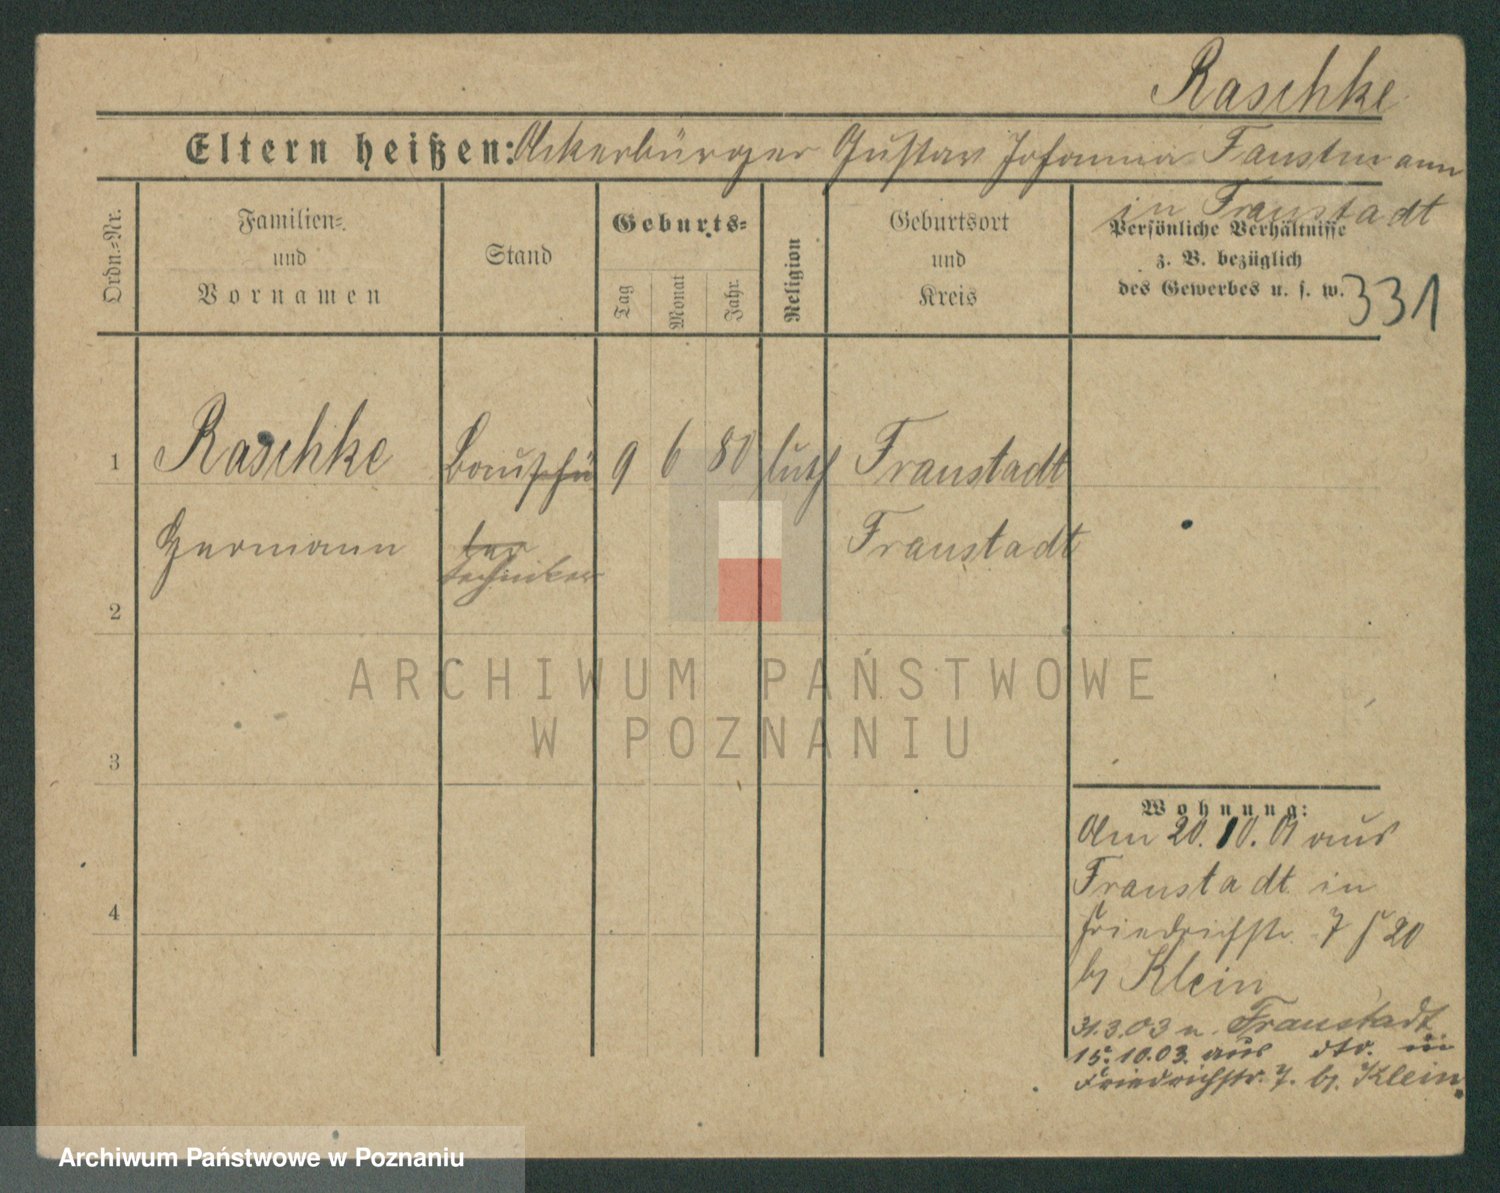 Raschke
Eltern heißen: Ackerbürger Gustav Johanna Faustmann
in Fraustadt
Ordn.-Nr.
Familien-
und
Vornamen
Stand
Geburts-
Tag
Monat
Jahr.
Religion
Geburtsort
und
Kreis
Persönliche Verhältnisse
z. B. bezüglich
des Gewerbes u. s. w.
331
1 Raschke Bauschü 9 6 80 luth Fraustadt
Hermann ler Fraustadt
techniker
2
3
4
Wohnung:
Am 20.10.01 aus
Fraustadt in
Friedrichstr 7 20
b/ Klein
31.3.03 n. Fraustadt
15.10.03. aus dto. in
Friedrichstr. 7. b/. Klein.
ARCHIWUM PAŃSTWOWE
W POZNANIU
Archiwum Państwowe w Poznaniu